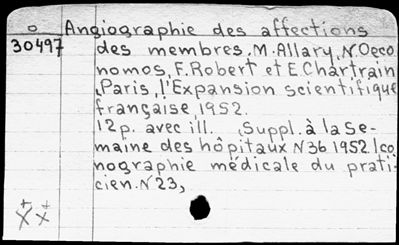 o Angiographie des affections
30497 des membres. M. Allary, N. Oeco
nomos, F. Robert et E. Chartrain
Paris, l'Expansion scientifique
française, 1952.
12 p. avec ill. Suppl. à la Se-
maine des hôpitaux N 36 1952. Ico
nographie médicale du prati-
cien. N 23,